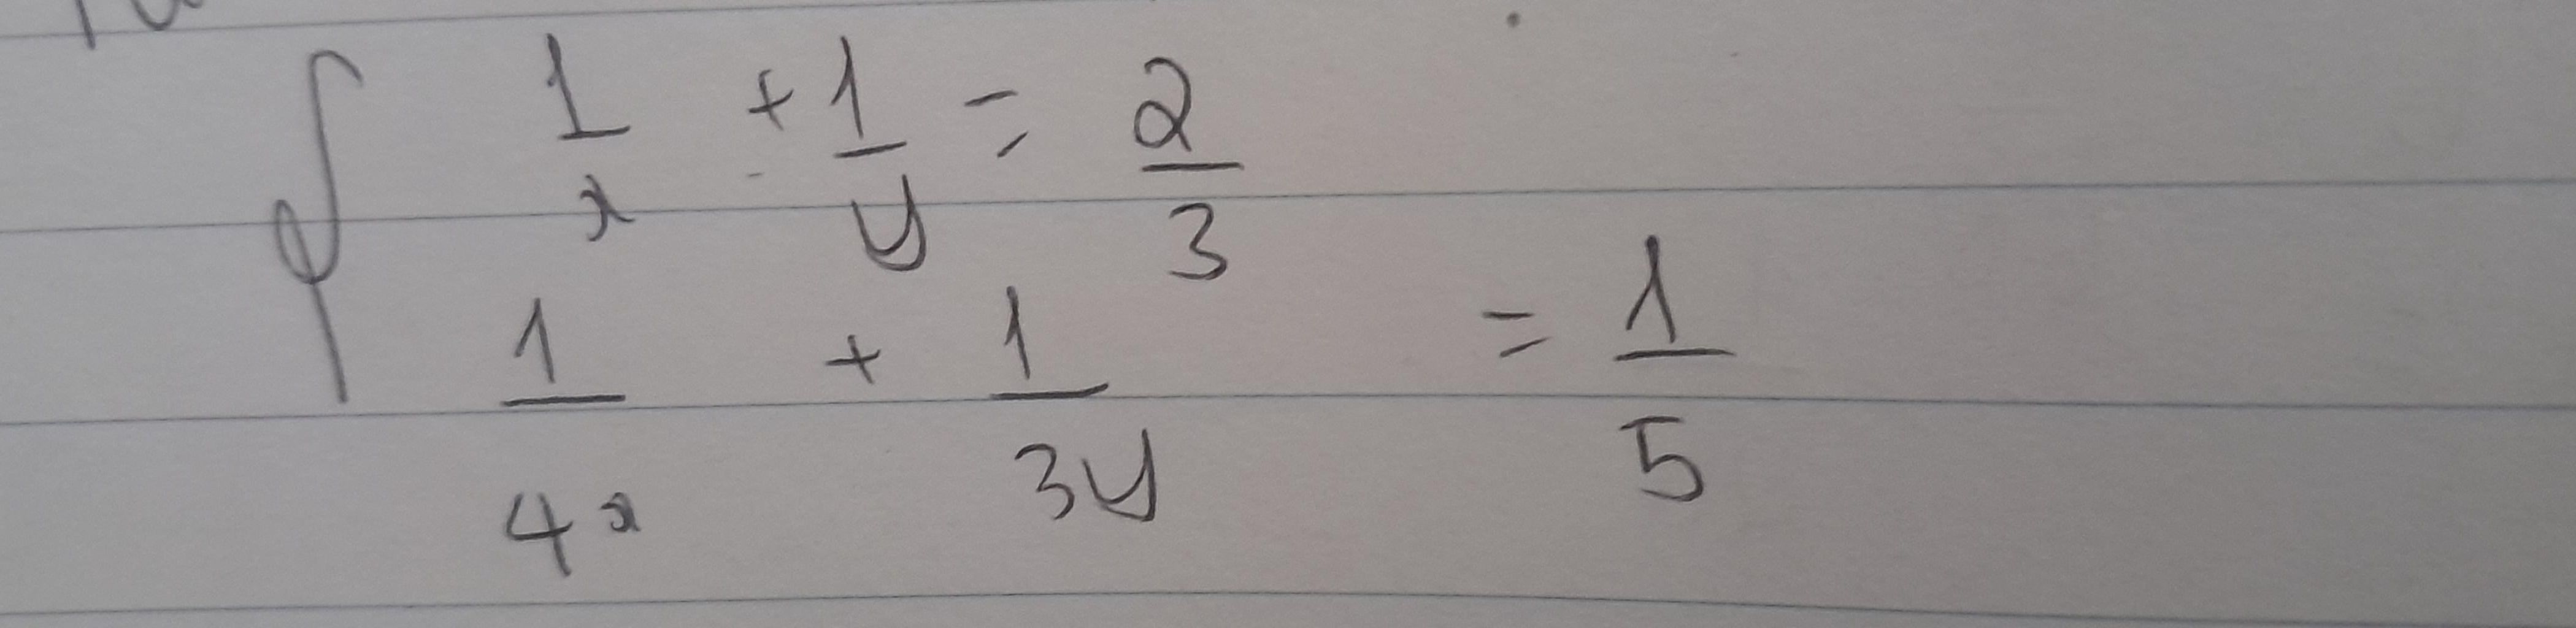 1/x + 1/y = 2/3
1/4x + 1/3y = 1/5